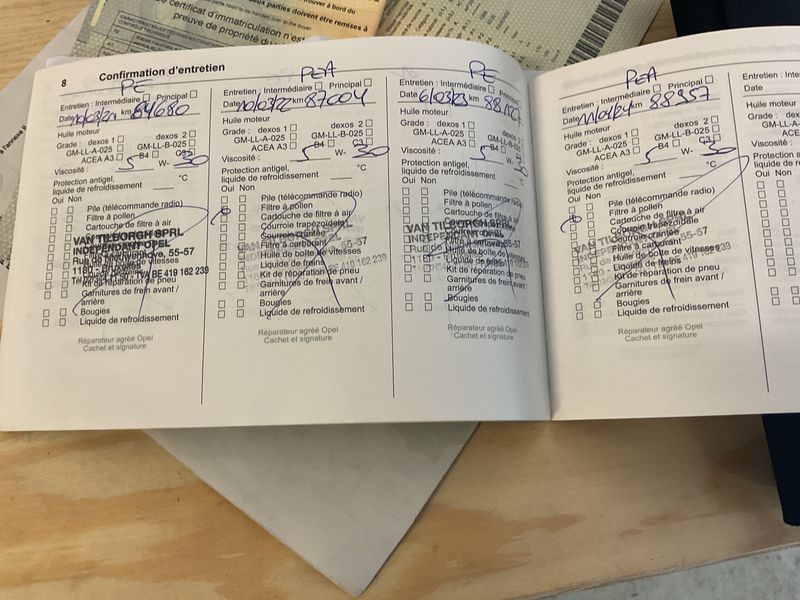 trouver à bord du
parties doivent être remises à
certificat d'immatriculation n'est
preuve de propriété du
8 Confirmation d'entretien
PE
Entretien : Intermédiaire Principal
Date km 84680
Huile moteur
Grade : dexos 1 dexos 2
GM-LL-A-025 GM-LL-B-025
ACEA A3 B4 C3
Viscosité : 5 W- 30
Protection antigel,
liquide de refroidissement °C
Oui Non
Pile (télécommande radio)
Filtre à pollen
Cartouche de filtre à air
VAN TILBORGH SPRL
INDEPENDANT OPEL
55-57
1180 - TVA BE 419 162 239
Kit de réparation de pneu
Garnitures de frein avant /
arrière
Bougies
Liquide de refroidissement
Réparateur agréé Opel
Cachet et signature
PEA
Entretien : Intermédiaire Principal
Date 10/03/22 km 87004
Huile moteur
Grade : dexos 1 dexos 2
GM-LL-A-025 GM-LL-B-025
ACEA A3 B4 C3
Viscosité : 5 W- 30
Protection antigel,
liquide de refroidissement °C
Oui Non
Pile (télécommande radio)
Filtre à pollen
Cartouche de filtre à air
Courroie trapézoïdale
Courroie crantée
Filtre à carburant
Huile de boîte de vitesses
Liquide de freins
Kit de réparation de pneu
Garnitures de frein avant /
arrière
Bougies
Liquide de refroidissement
Réparateur agréé Opel
Cachet et signature
PE
Entretien : Intermédiaire Principal
Date 6/03/23 km 88127
Huile moteur
Grade : dexos 1 dexos 2
GM-LL-A-025 GM-LL-B-025
ACEA A3 B4 C3
Viscosité : 5 W- 30
Protection antigel,
liquide de refroidissement °C
Oui Non
Pile (télécommande radio)
Filtre à pollen
Cartouche de filtre à air
VAN TILBORGH SPRL
INDEPENDANT OPEL
55-57
419 162 239
Kit de réparation de pneu
Garnitures de frein avant /
arrière
Bougies
Liquide de refroidissement
Réparateur agréé Opel
Cachet et signature
PEA
Entretien : Intermédiaire Principal
Date km 88957
Huile moteur
Grade : dexos 1 dexos 2
GM-LL-A-025 GM-LL-B-025
ACEA A3 B4 C3
Viscosité : 5 W- 30
Protection antigel,
liquide de refroidissement °C
Oui Non
Pile (télécommande radio)
Filtre à pollen
Cartouche de filtre à air
Courroie trapézoïdale
Courroie crantée
Filtre à carburant
Huile de boîte de vitesses
Liquide de freins
Kit de réparation de pneu
Garnitures de frein avant /
arrière
Bougies
Liquide de refroidissement
Réparateur agréé Opel
Cachet et signature
Entretien : Inter
Date
Huile moteur
Grade : dex
GM-LL-A-
ACE
Viscosité :
Protection a
liquide de re
Oui Non